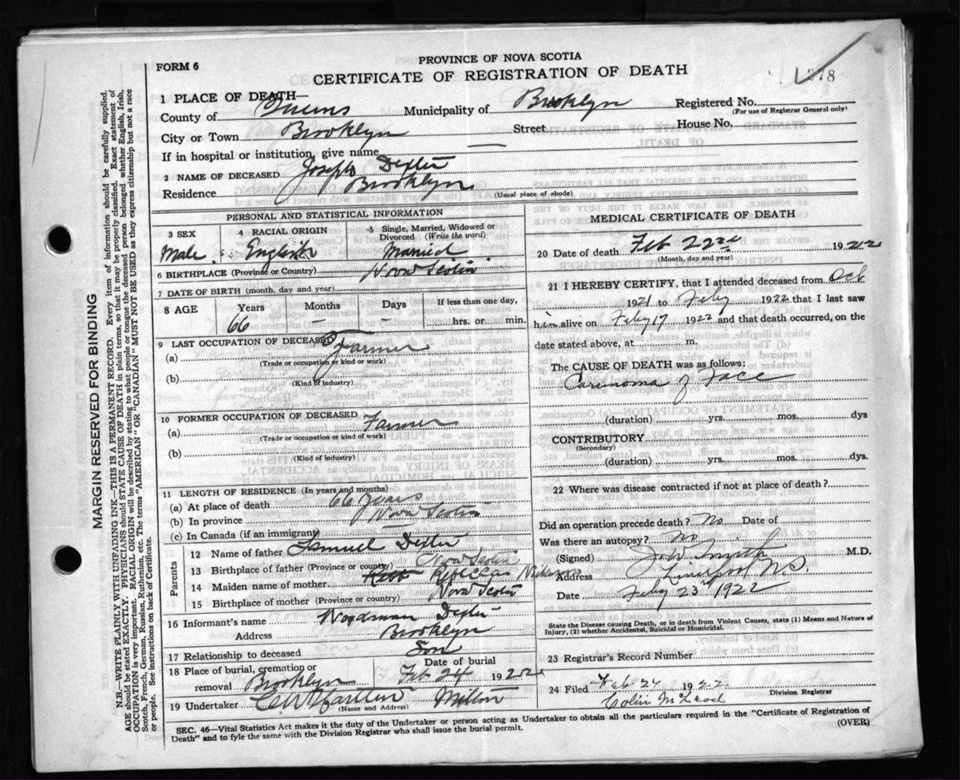 PROVINCE OF NOVA SCOTIA
FORM 6
CERTIFICATE OF REGISTRATION OF DEATH
1 PLACE OF DEATH—
County of Queens Municipality of Brooklyn Registered No.
(For use of Registrar General only)
City or Town Brooklyn Street House No.
If in hospital or institution, give name
2 NAME OF DECEASED Joseph Dexter
Residence Brooklyn (Usual place of abode)
PERSONAL AND STATISTICAL INFORMATION
3 SEX 4 RACIAL ORIGIN 5 Single, Married, Widowed or Divorced (Write the word)
Male English Married
6 BIRTHPLACE (Province or Country) Nova Scotia
7 DATE OF BIRTH (month, day and year)
8 AGE Years Months Days If less than one day,
66 — — hrs. or min.
9 LAST OCCUPATION OF DECEASED
(a) Farmer
(Trade or occupation or kind or work)
(b)
(Kind of industry)
10 FORMER OCCUPATION OF DECEASED
(a) Farmer
(Trade or occupation or kind of work)
(b)
(Kind of industry)
11 LENGTH OF RESIDENCE (In years and months)
(a) At place of death 66 years
(b) In province Nova Scotia
(c) In Canada (if an immigrant)
Parents
12 Name of father Samuel Dexter
13 Birthplace of father (Province or country) Nova Scotia
14 Maiden name of mother Rebecca
15 Birthplace of mother (Province or country) Nova Scotia
16 Informant's name Woodman Dexter
Address Brooklyn
17 Relationship to deceased Son
18 Place of burial, cremation or removal Brooklyn Date of burial Feb 24 1922
19 Undertaker Milton
(Name and Address)
MEDICAL CERTIFICATE OF DEATH
20 Date of death Feb 22nd 1922
(Month, day and year)
21 I HEREBY CERTIFY, that I attended deceased from Oct
1921 to Feby 1922 that I last saw
him alive on Feby 17 1922 and that death occurred, on the
date stated above, at m.
The CAUSE OF DEATH was as follows:
Carcinoma of Face
(duration) yrs. mos. dys
CONTRIBUTORY
(Secondary)
(duration) yrs. mos. dys
22 Where was disease contracted if not at place of death?
Did an operation precede death? No Date of
Was there an autopsy? No
(Signed) Smith M.D.
Address Liverpool N.S.
Date Feby 23 1922
State the Disease causing Death, or in death from Violent Causes, state (1) Means and Nature of Injury, (2) whether Accidental, Suicidal or Homicidal.
23 Registrar's Record Number
24 Filed Feb 27 1922
Colin McLeod Division Registrar
SEC. 46—Vital Statistics Act makes it the duty of the Undertaker or person acting as Undertaker to obtain all the particulars required in the "Certificate of Registration of Death" and to fyle the same with the Division Registrar who shall issue the burial permit. (OVER)
MARGIN RESERVED FOR BINDING
N.B.—WRITE PLAINLY WITH UNFADING INK—THIS IS A PERMANENT RECORD. Every item of information should be carefully supplied.
AGE should be stated EXACTLY. PHYSICIANS should STATE CAUSE OF DEATH in plain terms, so that it may be properly classified. Exact statement of
OCCUPATION is very important. RACIAL ORIGIN will be described by stating to what people or tongue the deceased person belonged whether English, Irish,
Scotch, French, German, Russian, Ruthenian, etc. The terms "AMERICAN" OR "CANADIAN" MUST NOT BE USED as they express citizenship but not a race
or people. See instructions on back of Certificate.